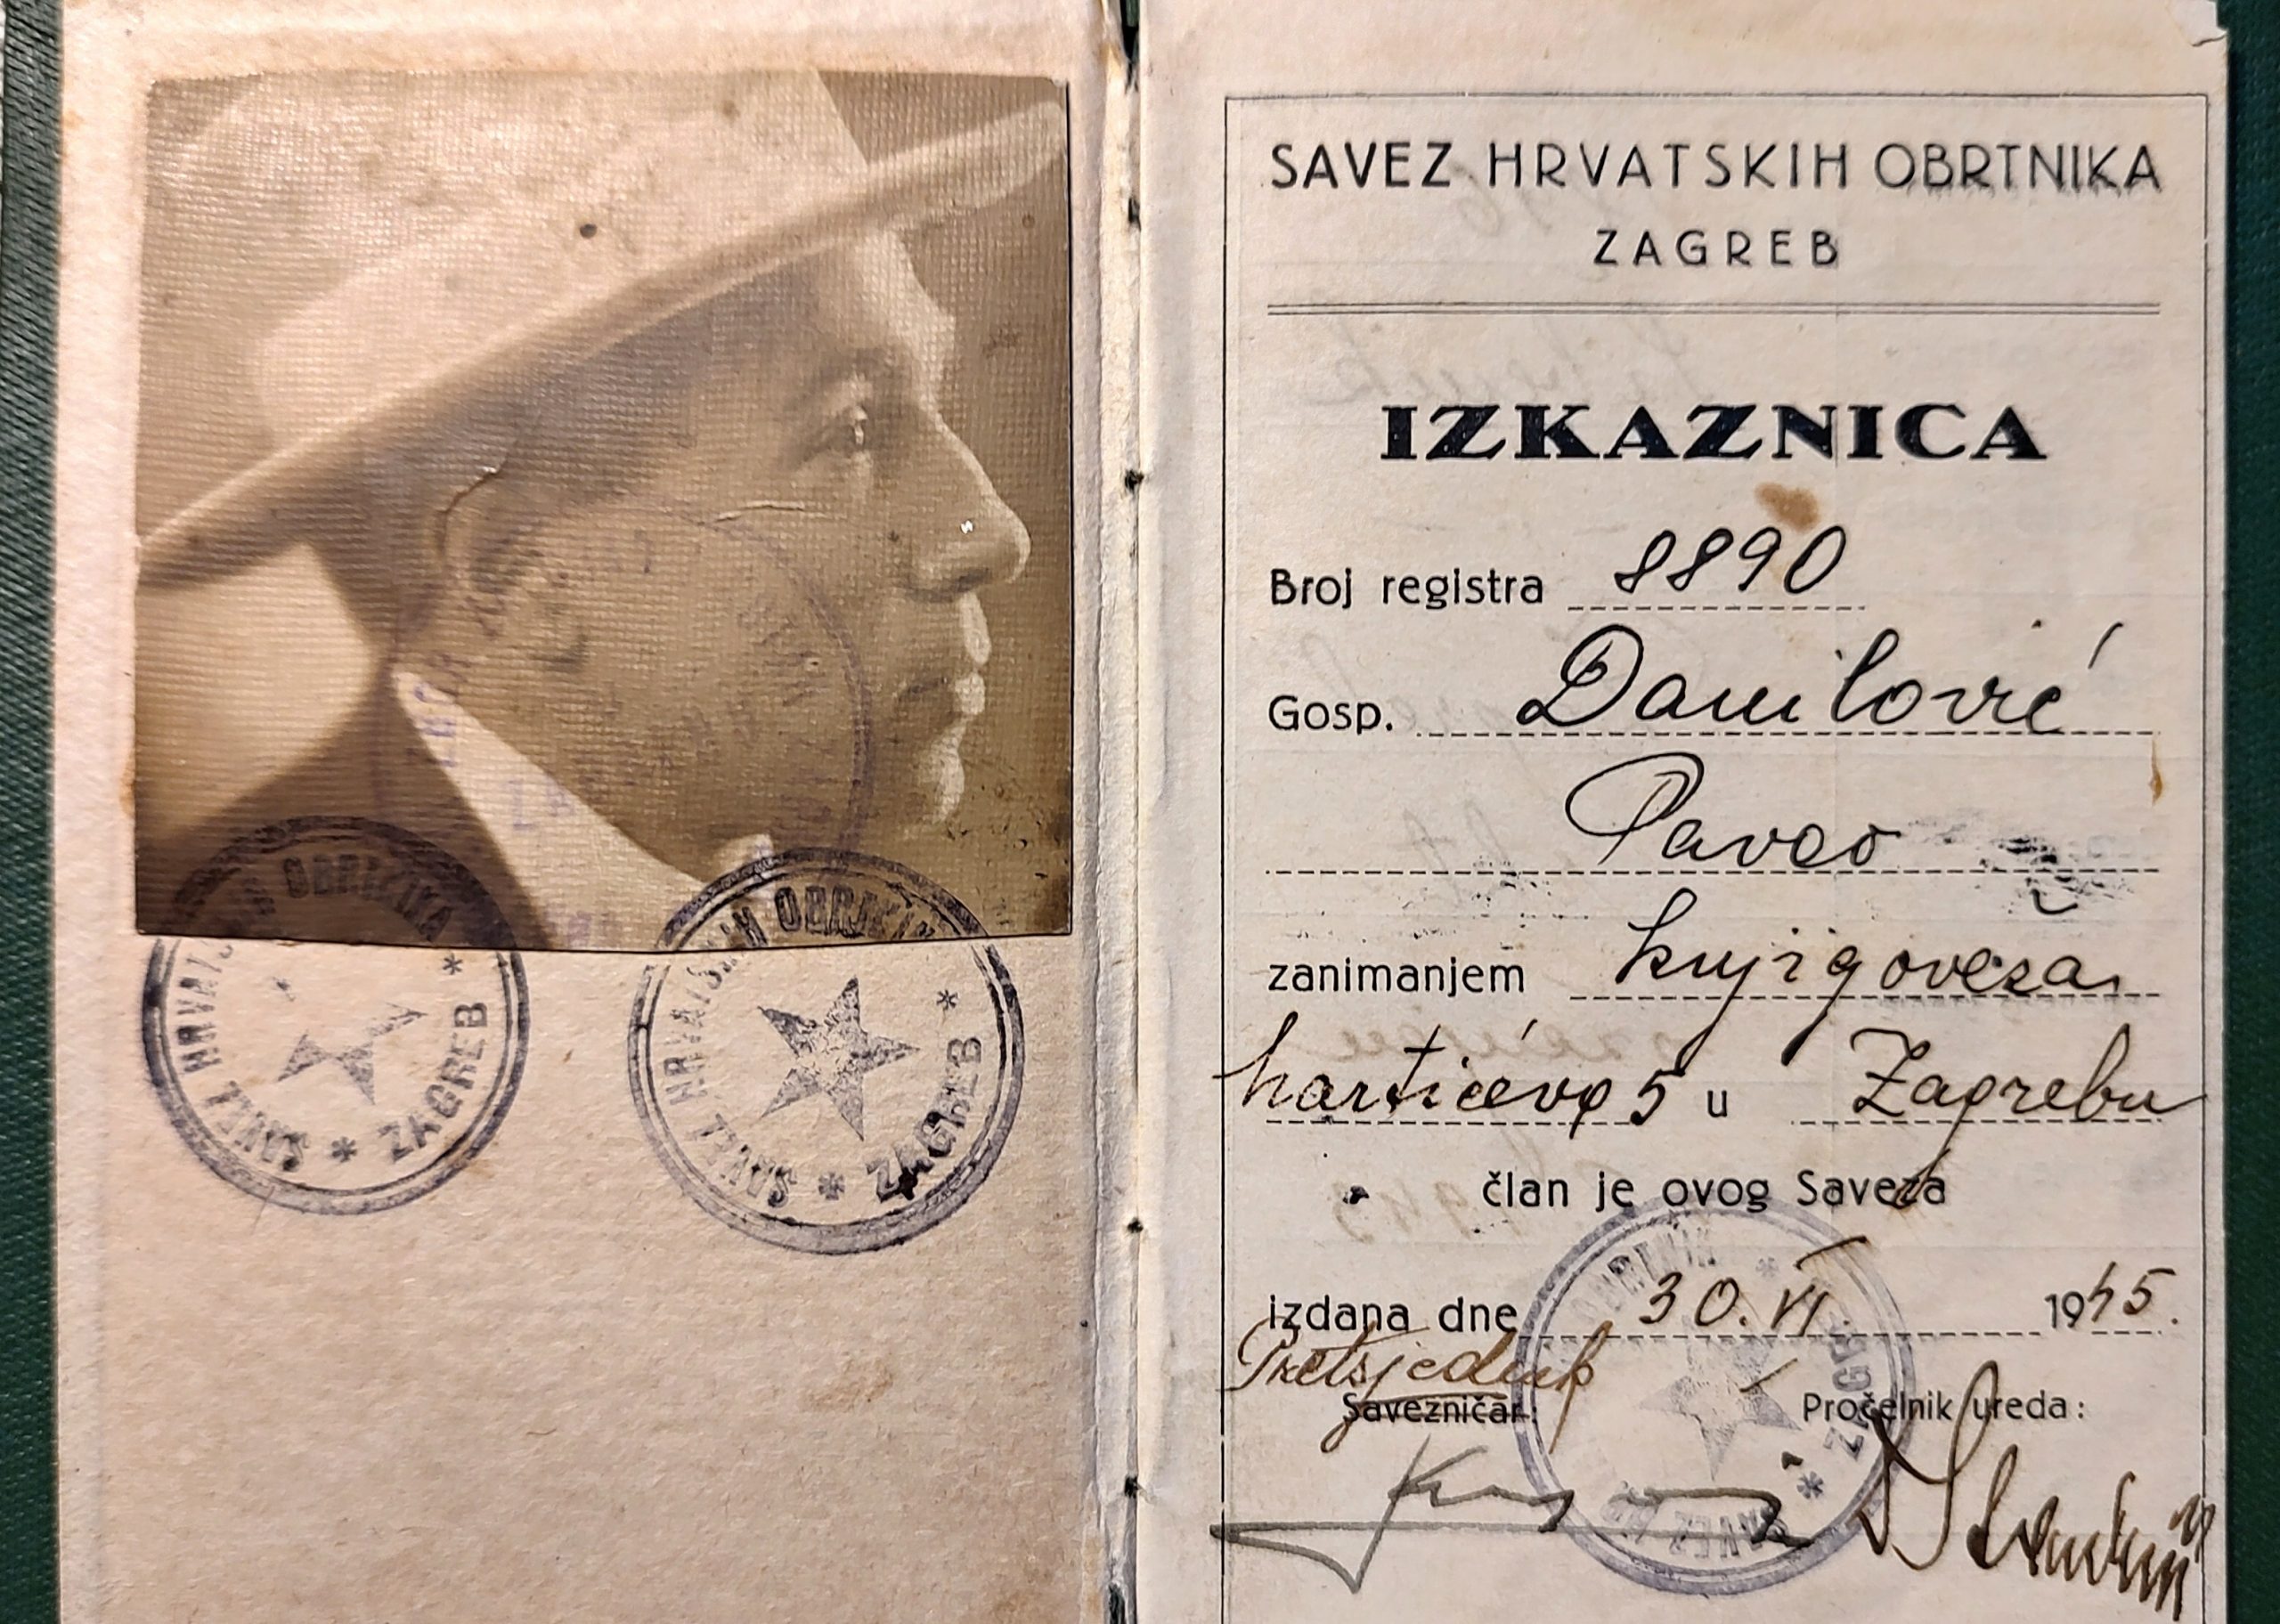 SAVEZ HRVATSKIH OBRTNIKA
ZAGREB
SAVEZ HRVATSKIH OBRTNIKA
ZAGREB
SAVEZ HRVATSKIH OBRTNIKA
ZAGREB
IZKAZNICA
Broj registra 8890
Gosp. Danilović
Pavao
zanimanjem knjigoveža
Martićeva 5 u Zagrebu
član je ovog Saveza
izdana dne 30. VI 1945.
Pretsjednik
Savezničar: Pročelnik ureda:
SAVEZ HRVATSKIH OBRTNIKA ZAGREB